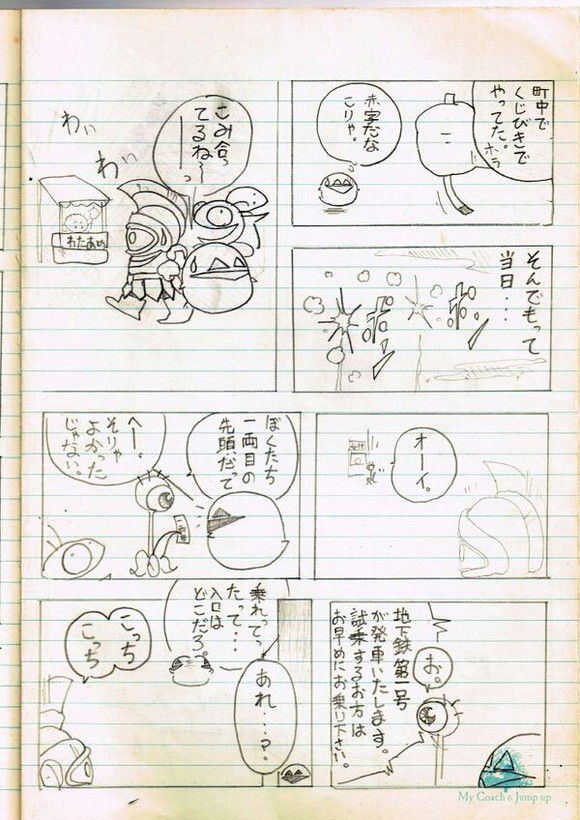 町中で
くじびきで
やってた。ホラ
赤字だな
こりゃ。
そんでもって
当日・・・
ポン
ポン
こみ合っ
てるね～っ
わぃ
わぃ
わたあめ
オーイ。
ぼくたち
一両目の
先頭だって
へー。
そりゃ
よかった
じゃない。
お。
地下鉄第一号
が発車いたします。
試乗するお方は
お早めにお乗り下さい。
乗れってっ
たって・・・
入口は
どこだろ。
あれ・・・?
こっち
こっち
My Coach & Jump up